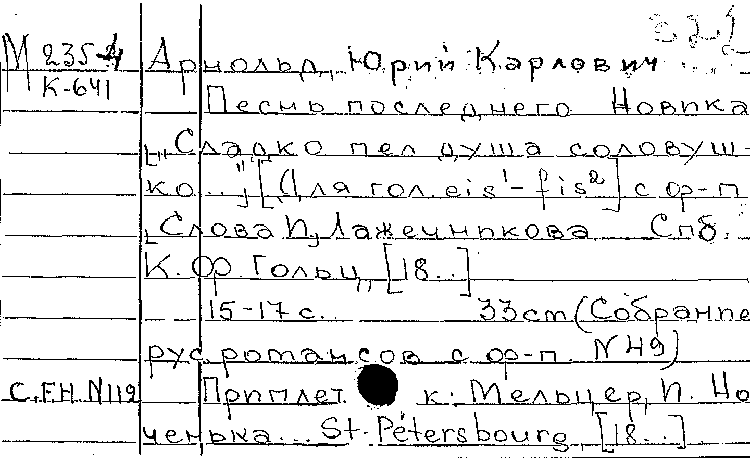 М 235-4 Арнольд, Юрий Карлович
К-641 Песнь последнего Новика
„Сладко пел душа соловуш-
ко..." [Для гол. eis¹-fis²] с ф-п
Слова И, Лажечникова Спб.
К. Ф. Гольц, [18..]
15-17 с. 33 cm (Собрание
рус романсов с ф-п. N 49)
С. ЕН. N 119 Приплет к: Мельцер, И. Но
ченька... St-Pétersbourg, [18..]